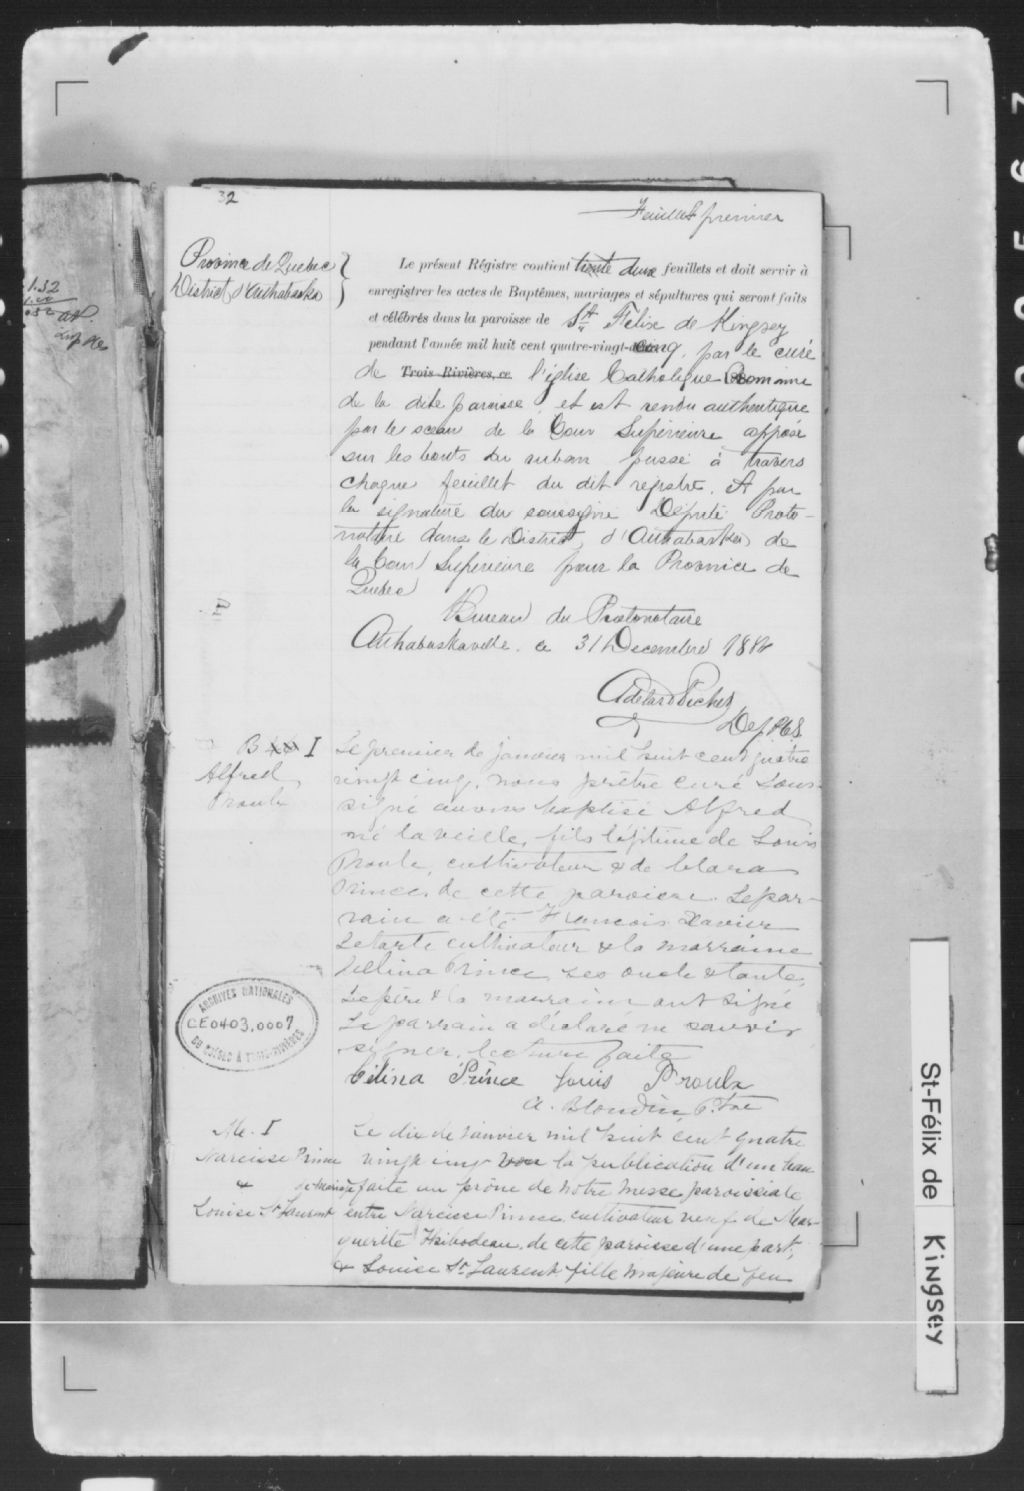 32
Feuillet premier
Province de Quebec
District d'Arthabaska
Le présent Régistre contient trente deux feuillets et doit servir à
enregistrer les actes de Baptêmes, mariages et sépultures qui seront faits
et célébrés dans la paroisse de St Felix de Kingsey
pendant l'année mil huit cent quatre-vingt-cinq, par le curé
de Trois-Rivières, ce l'église Catholique Romaine
de la dite paroisse, et est rendu authentique
par le sceau de la Cour Supérieure apposé
sur les bouts du ruban passé à travers
chaque feuillet du dit registre. et par
la signature du soussigné Député Proto-
notaire dans le District d'Arthabaska de
la Cour Supérieure pour la Province de
Quebec
Bureau du Protonotaire
Arthabaskaville. ce 31 Decembre 1884
Adelard Picher
Dep. P.C.S.
B I
Alfred
Proulx
Le premier de janvier mil huit cent quatre
vingt cinq, nous prêtre curé sous-
signé avons baptisé Alfred
né la veille, fils légitime de Louis
Proulx, cultivateur & de Clara
Prince de cette paroisse. Le par-
rain a été Francois Xavier
Letarte cultivateur & la marraine
Célina Prince ses oncle & tante,
Le père & la marraine ont signé
Le parrain a déclaré ne savoir
signer. lecture faite
Célina Prince Louis Proulx
A. Blondin Ptre
ARCHIVES NATIONALES
CE0403,0007
DU QUÉBEC À TROIS-RIVIÈRES
M. I
Narcisse Prince
&
Louise St Laurent
Le dix de Janvier mil huit cent quatre
vingt cinq vu la publication d'un ban
de mariage faite au prône de notre messe paroissiale
entre Narcisse Prince cultivateur veuf de Mar-
guerite Thibodeau de cette paroisse d'une part,
& Louise St Laurent fille majeure de feu
St-Félix de Kingsey